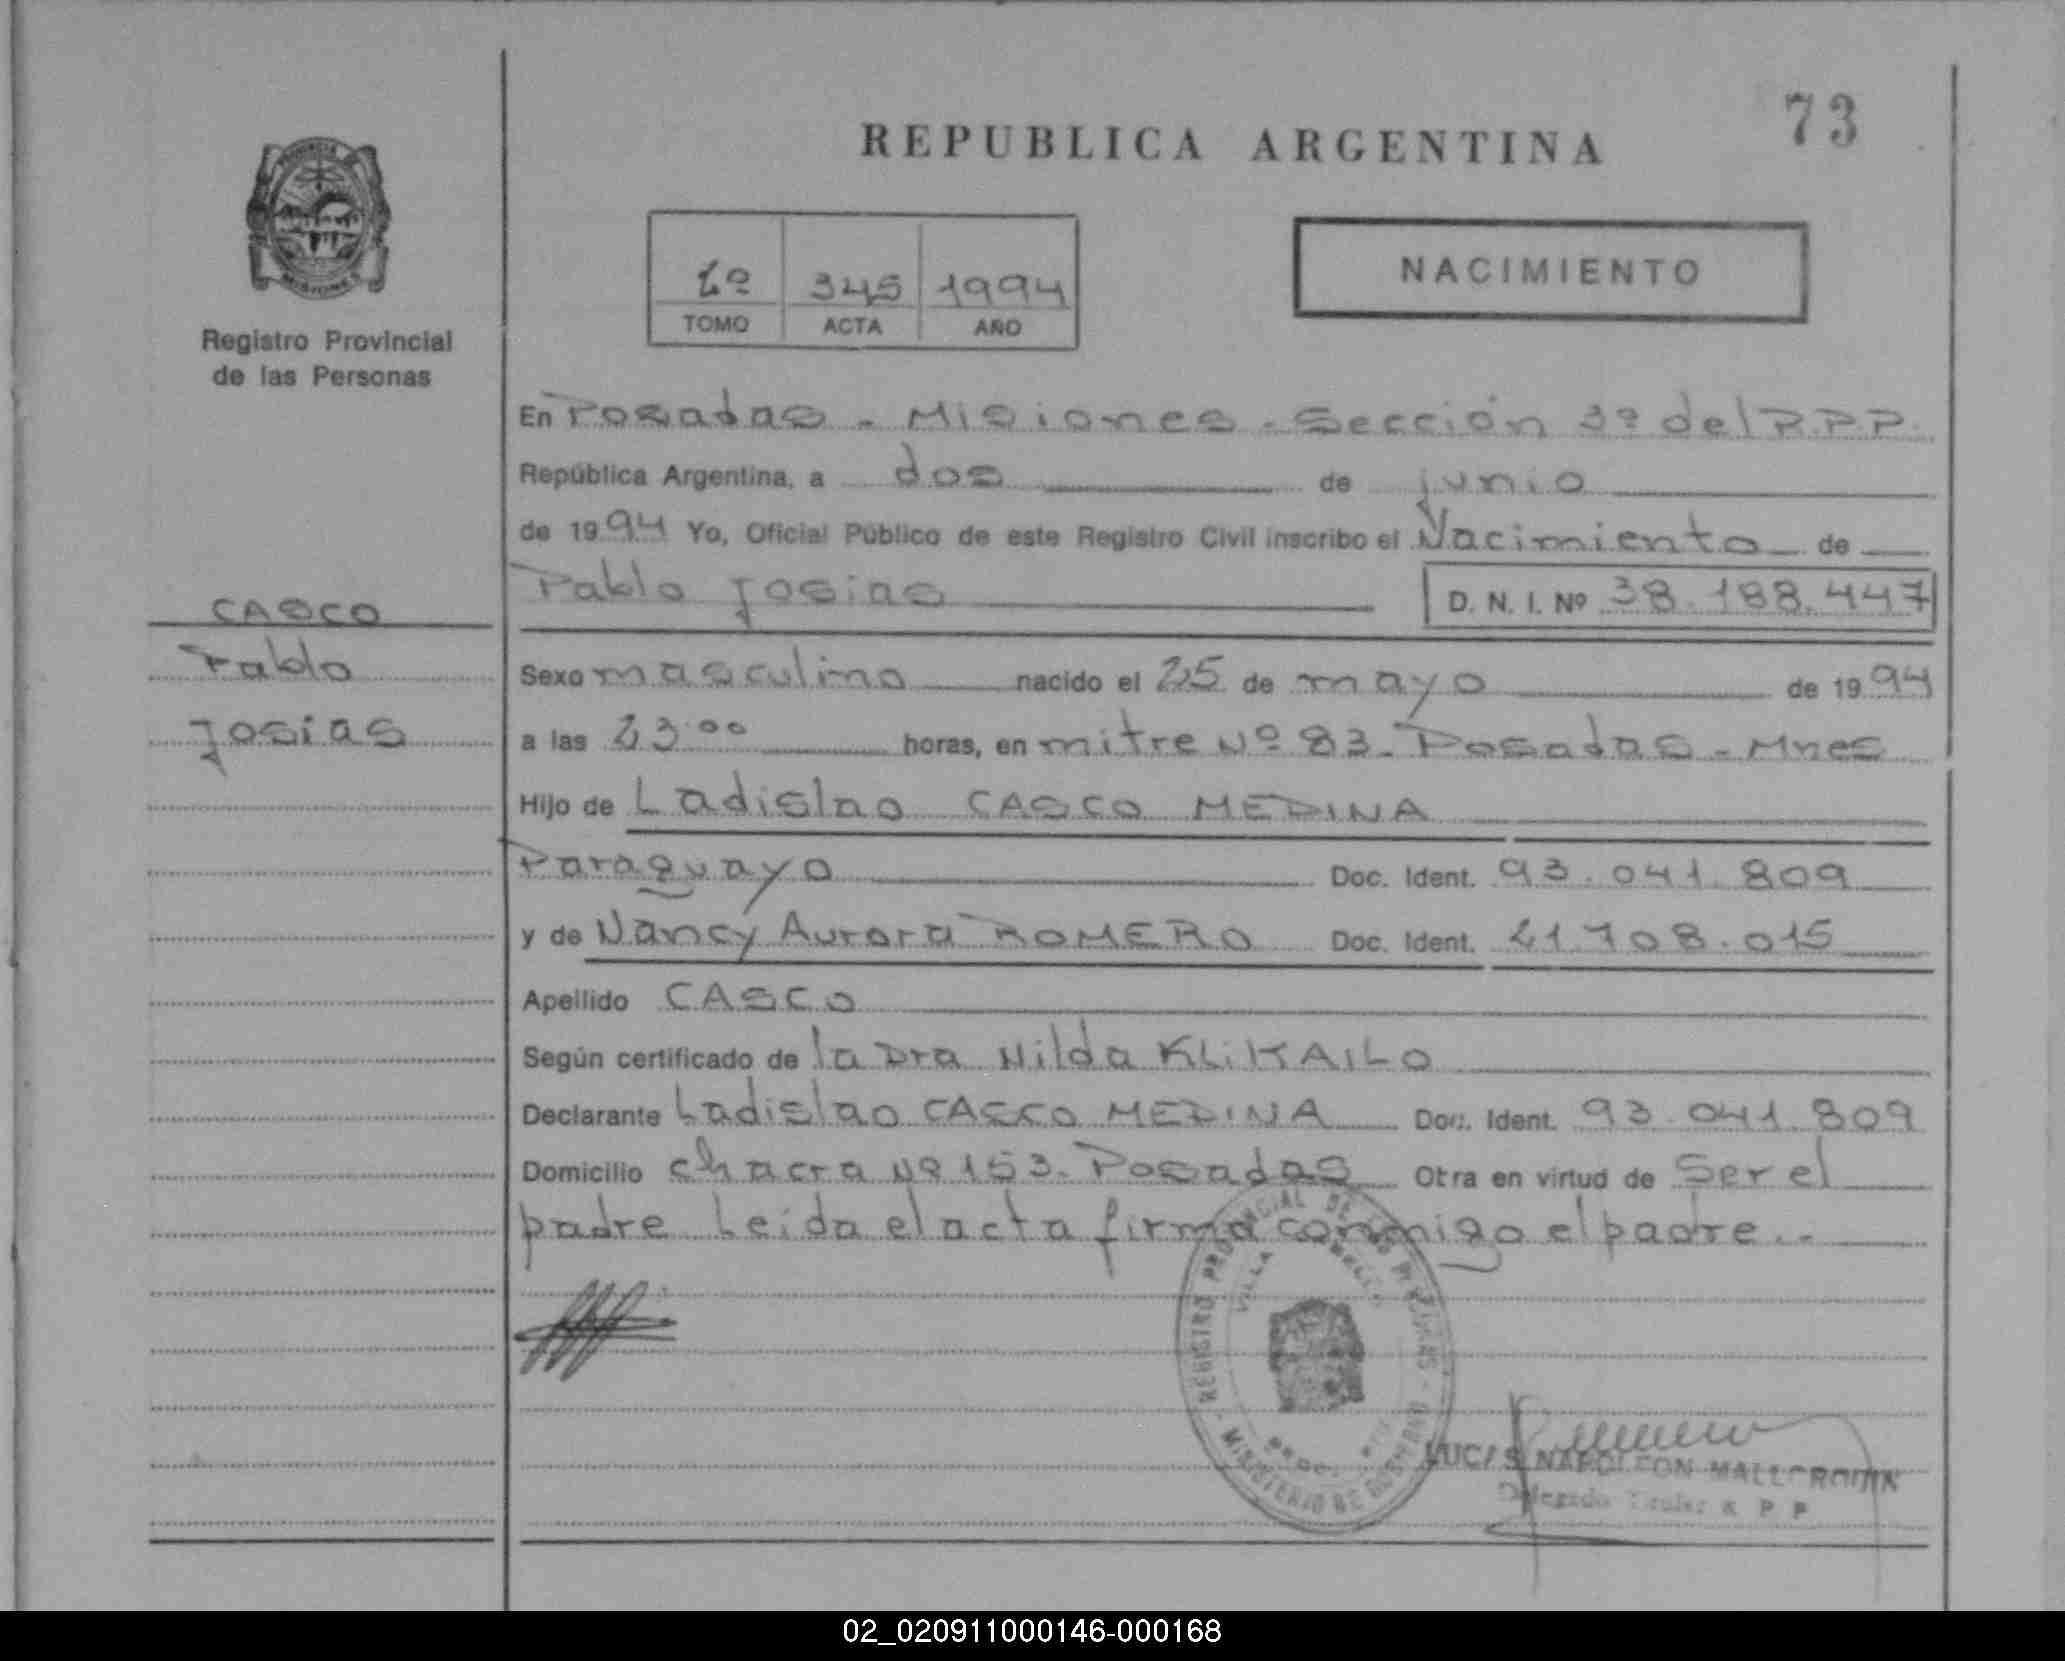 73
REPUBLICA ARGENTINA
2º 345 1994
TOMO ACTA AÑO
NACIMIENTO
Registro Provincial
de las Personas
En Posadas - Misiones - Sección 3º del R.P.P.
República Argentina, a dos de junio
de 1994 Yo, Oficial Público de este Registro Civil inscribo el Nacimiento de
Pablo Josias D. N. I. Nº 38.188.447
CASCO
Pablo
Josias
Sexo masculino nacido el 25 de mayo de 1994
a las 23:00 horas, en mitre Nº 83 - Posadas - Mnes
Hijo de Ladislao CASCO MEDINA
Paraguayo Doc. Ident. 93.041.809
y de Nancy Aurora ROMERO Doc. Ident. 21.708.015
Apellido CASCO
Según certificado de la Dra Nilda KLIKAILO
Declarante Ladislao CASCO MEDINA Doc. Ident. 93.041.809
Domicilio chacra Nº 153 - Posadas Otra en virtud de Ser el
padre Leida el acta firma conmigo el padre..
REGISTRO PROVINCIAL DE LAS PERSONAS - MINISTERIO DE GOBIERNO
VILLA
LUCAS NAPOLEON
Delegado Titular R P P
02_020911000146-000168